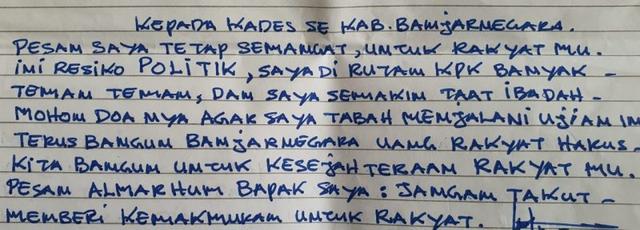 KEPADA KADES SE KAB. BANJARNEGARA.
PESAN SAYA TETAP SEMANGAT, UNTUK RAKYAT MU.
INI RESIKO POLITIK, SAYA DI RUTAN KPK BANYAK -
TEMAN TEMAN, DAN SAYA SEMAKIN TAAT IBADAH -
MOHON DOA NYA AGAR SAYA TABAH MENJALANI UJIAN IN
TERUS BANGUN BANJARNEGARA UANG RAKYAT HARUS -
KITA BANGUN UNTUK KESEJAHTERAAN RAKYAT MU.
PESAN ALMARHUM BAPAK SAYA : JANGAN TAKUT -
MEMBERI KEMAKMURAN UNTUK RAKYAT.